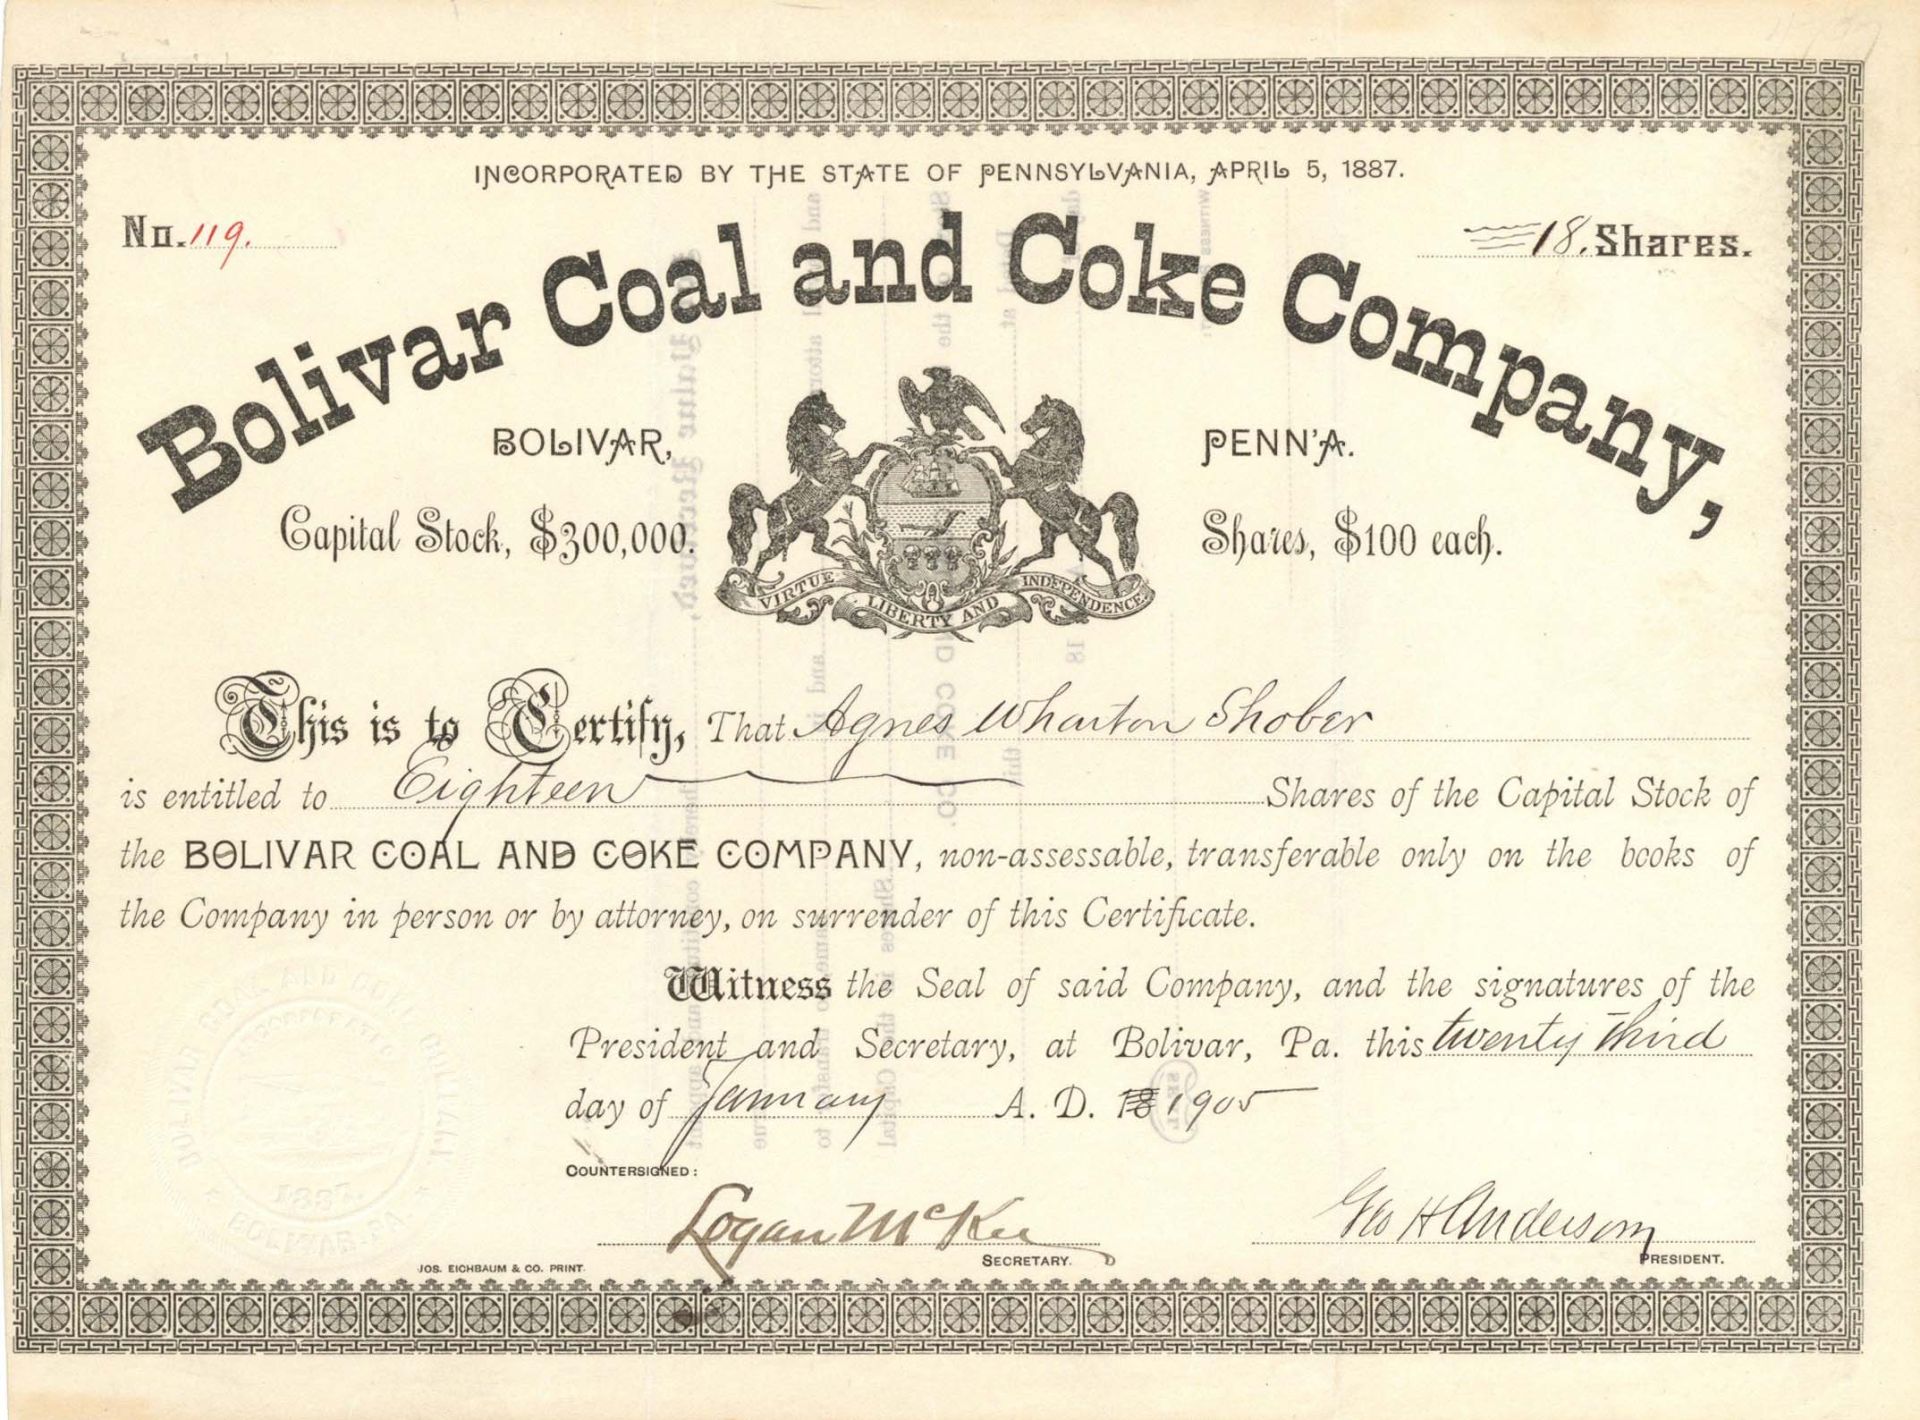 INCORPORATED BY THE STATE OF PENNSYLVANIA, APRIL 5, 1887.
No. 119.
18. Shares.
Bolivar Coal and Coke Company,
BOLIVAR, PENN'A.
Capital Stock, $300,000. Shares, $100 each.
VIRTUE LIBERTY AND INDEPENDENCE
This is to Certify, That Agnes Wharton Shober
is entitled to Eighteen Shares of the Capital Stock of
the BOLIVAR COAL AND COKE COMPANY, non-assessable, transferable only on the books of
the Company in person or by attorney, on surrender of this Certificate.
Witness the Seal of said Company, and the signatures of the
President and Secretary, at Bolivar, Pa. this twenty third
day of January A. D. 18 1905
COUNTERSIGNED:
Logan McKee
SECRETARY.
Geo H Anderson
PRESIDENT.
JOS. EICHBAUM & CO. PRINT.
BOLIVAR COAL AND COKE COMPANY
INCORPORATED
1887.
BOLIVAR, PA.